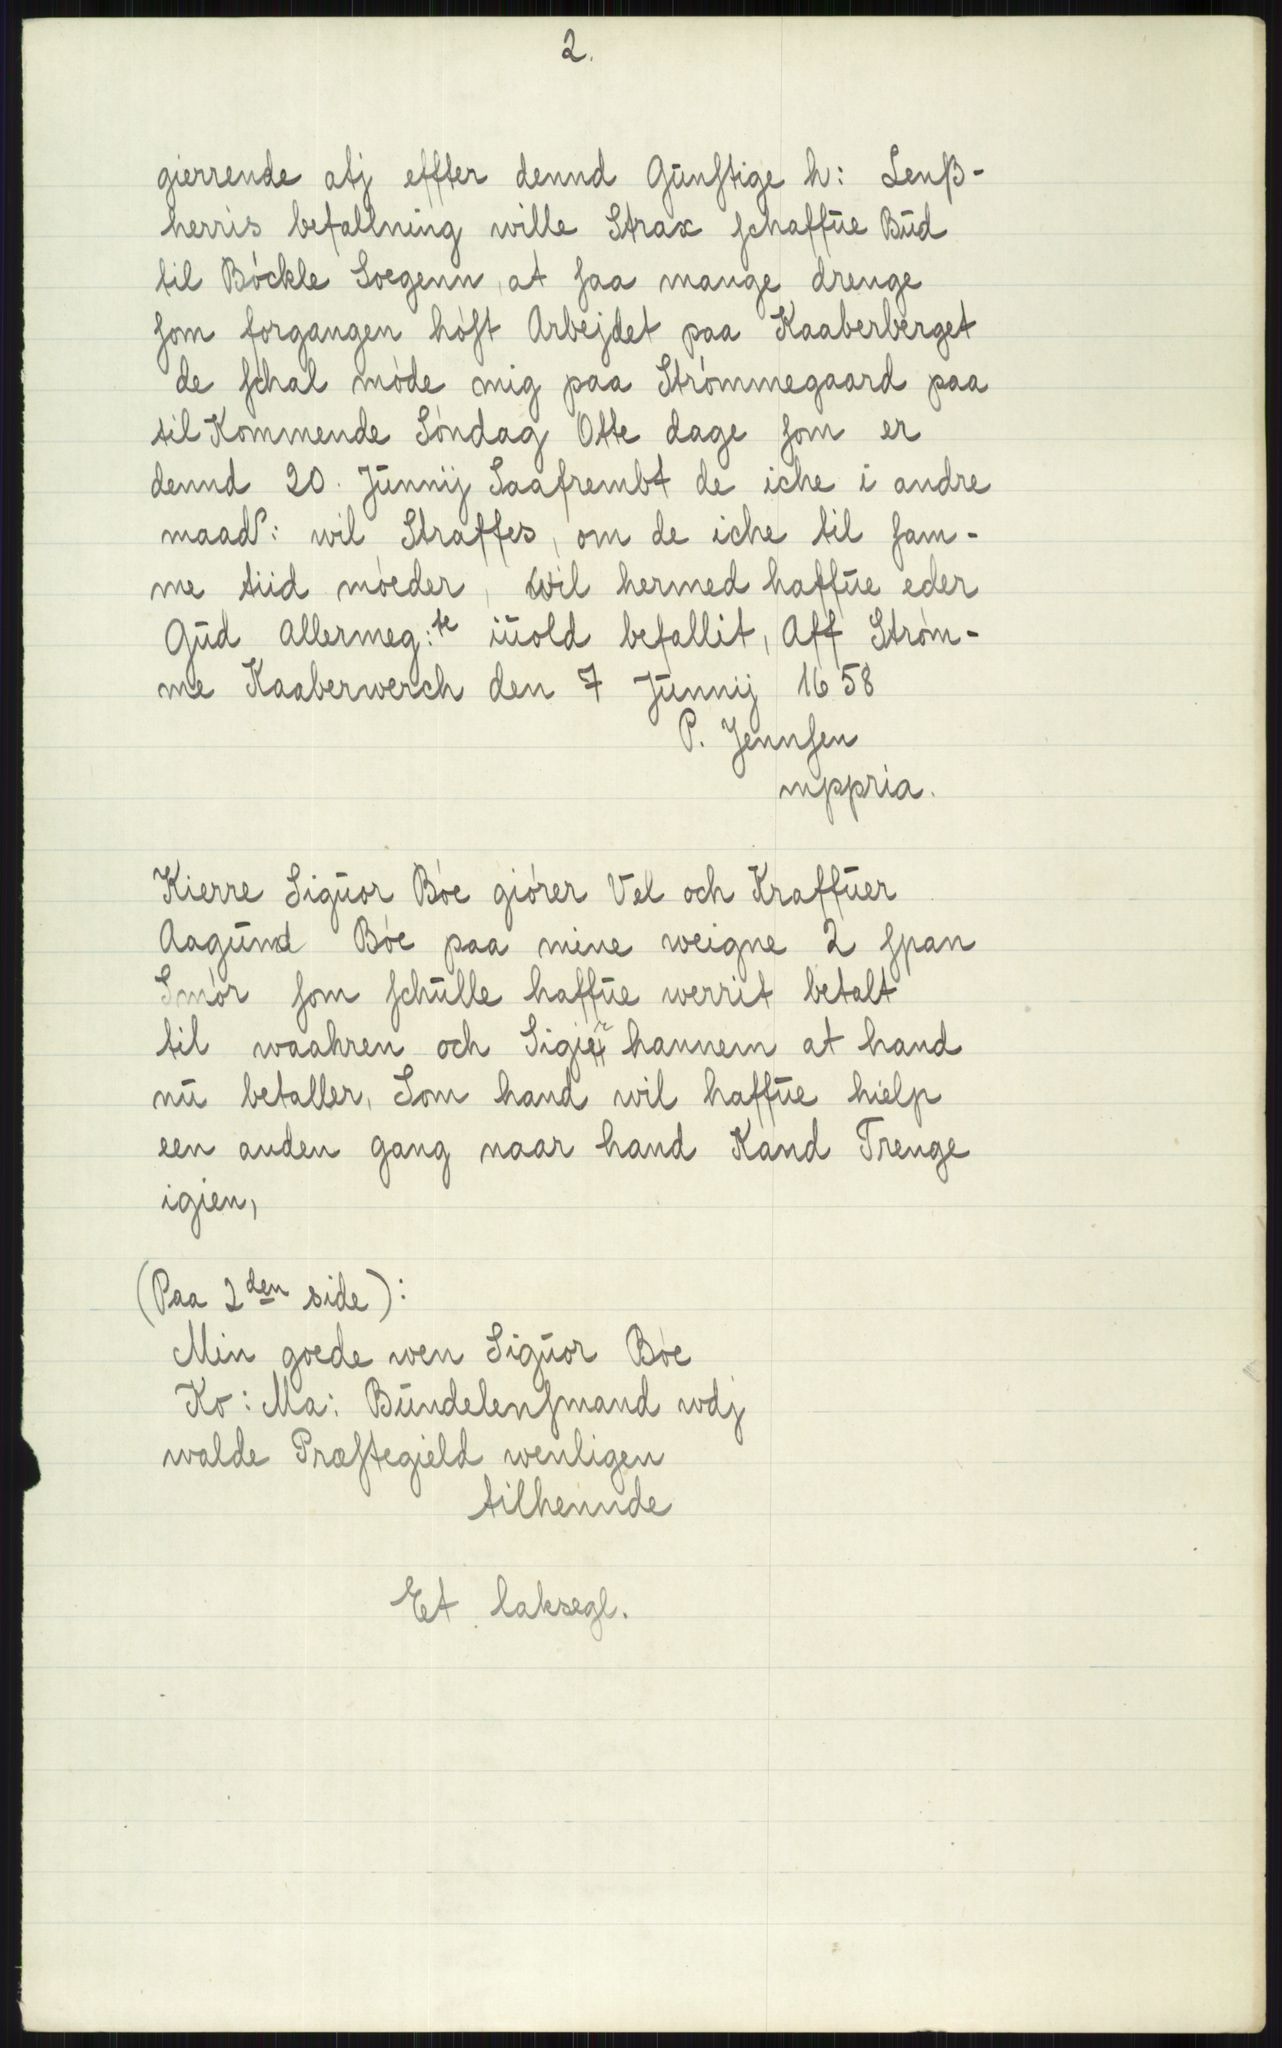 2.
gierrende atj effter dennd Gūnſtige h: Lenſz-
herris befallning wille Strax ſchaffūe Būd
til Böckle Soegenn, at ſaa mange drenge
ſom forgangen höſt Arbejdet paa Kaaberberget
de ſchal möde mig paa Strömmegaard paa
til Kommende Söndag Otte dage ſom er
dennd 20. Jūnnij Saafrembt de iche i andre
maad: wil Straffes, om de iche til ſam-
me tiid möeder, wil hermed haffūe eder
Gūd Allermeg:te iūold befallit, Aff Ström-
me Kaaberwerch den 7 Jūnnij 1658
P. Jennſen
mppria.
Kierre Sigūor Böe giörer Vel och Kraffūer
Aagūnd Böe paa mine weigne 2 ſpan
Smör ſom ſchūlle haffūe werrit betalt
til waahren och Sigier hannem at hand
nū betaller, Som hand wil haffūe hielp
een anden gang naar hand Kand Trenge
igien,
(Paa 2den side):
Min goede wen Sigūor Böe
Ko: Ma: Būndelenſmand wdj
walde Præſtegield wenligen
tilhennde
Et laksegl.